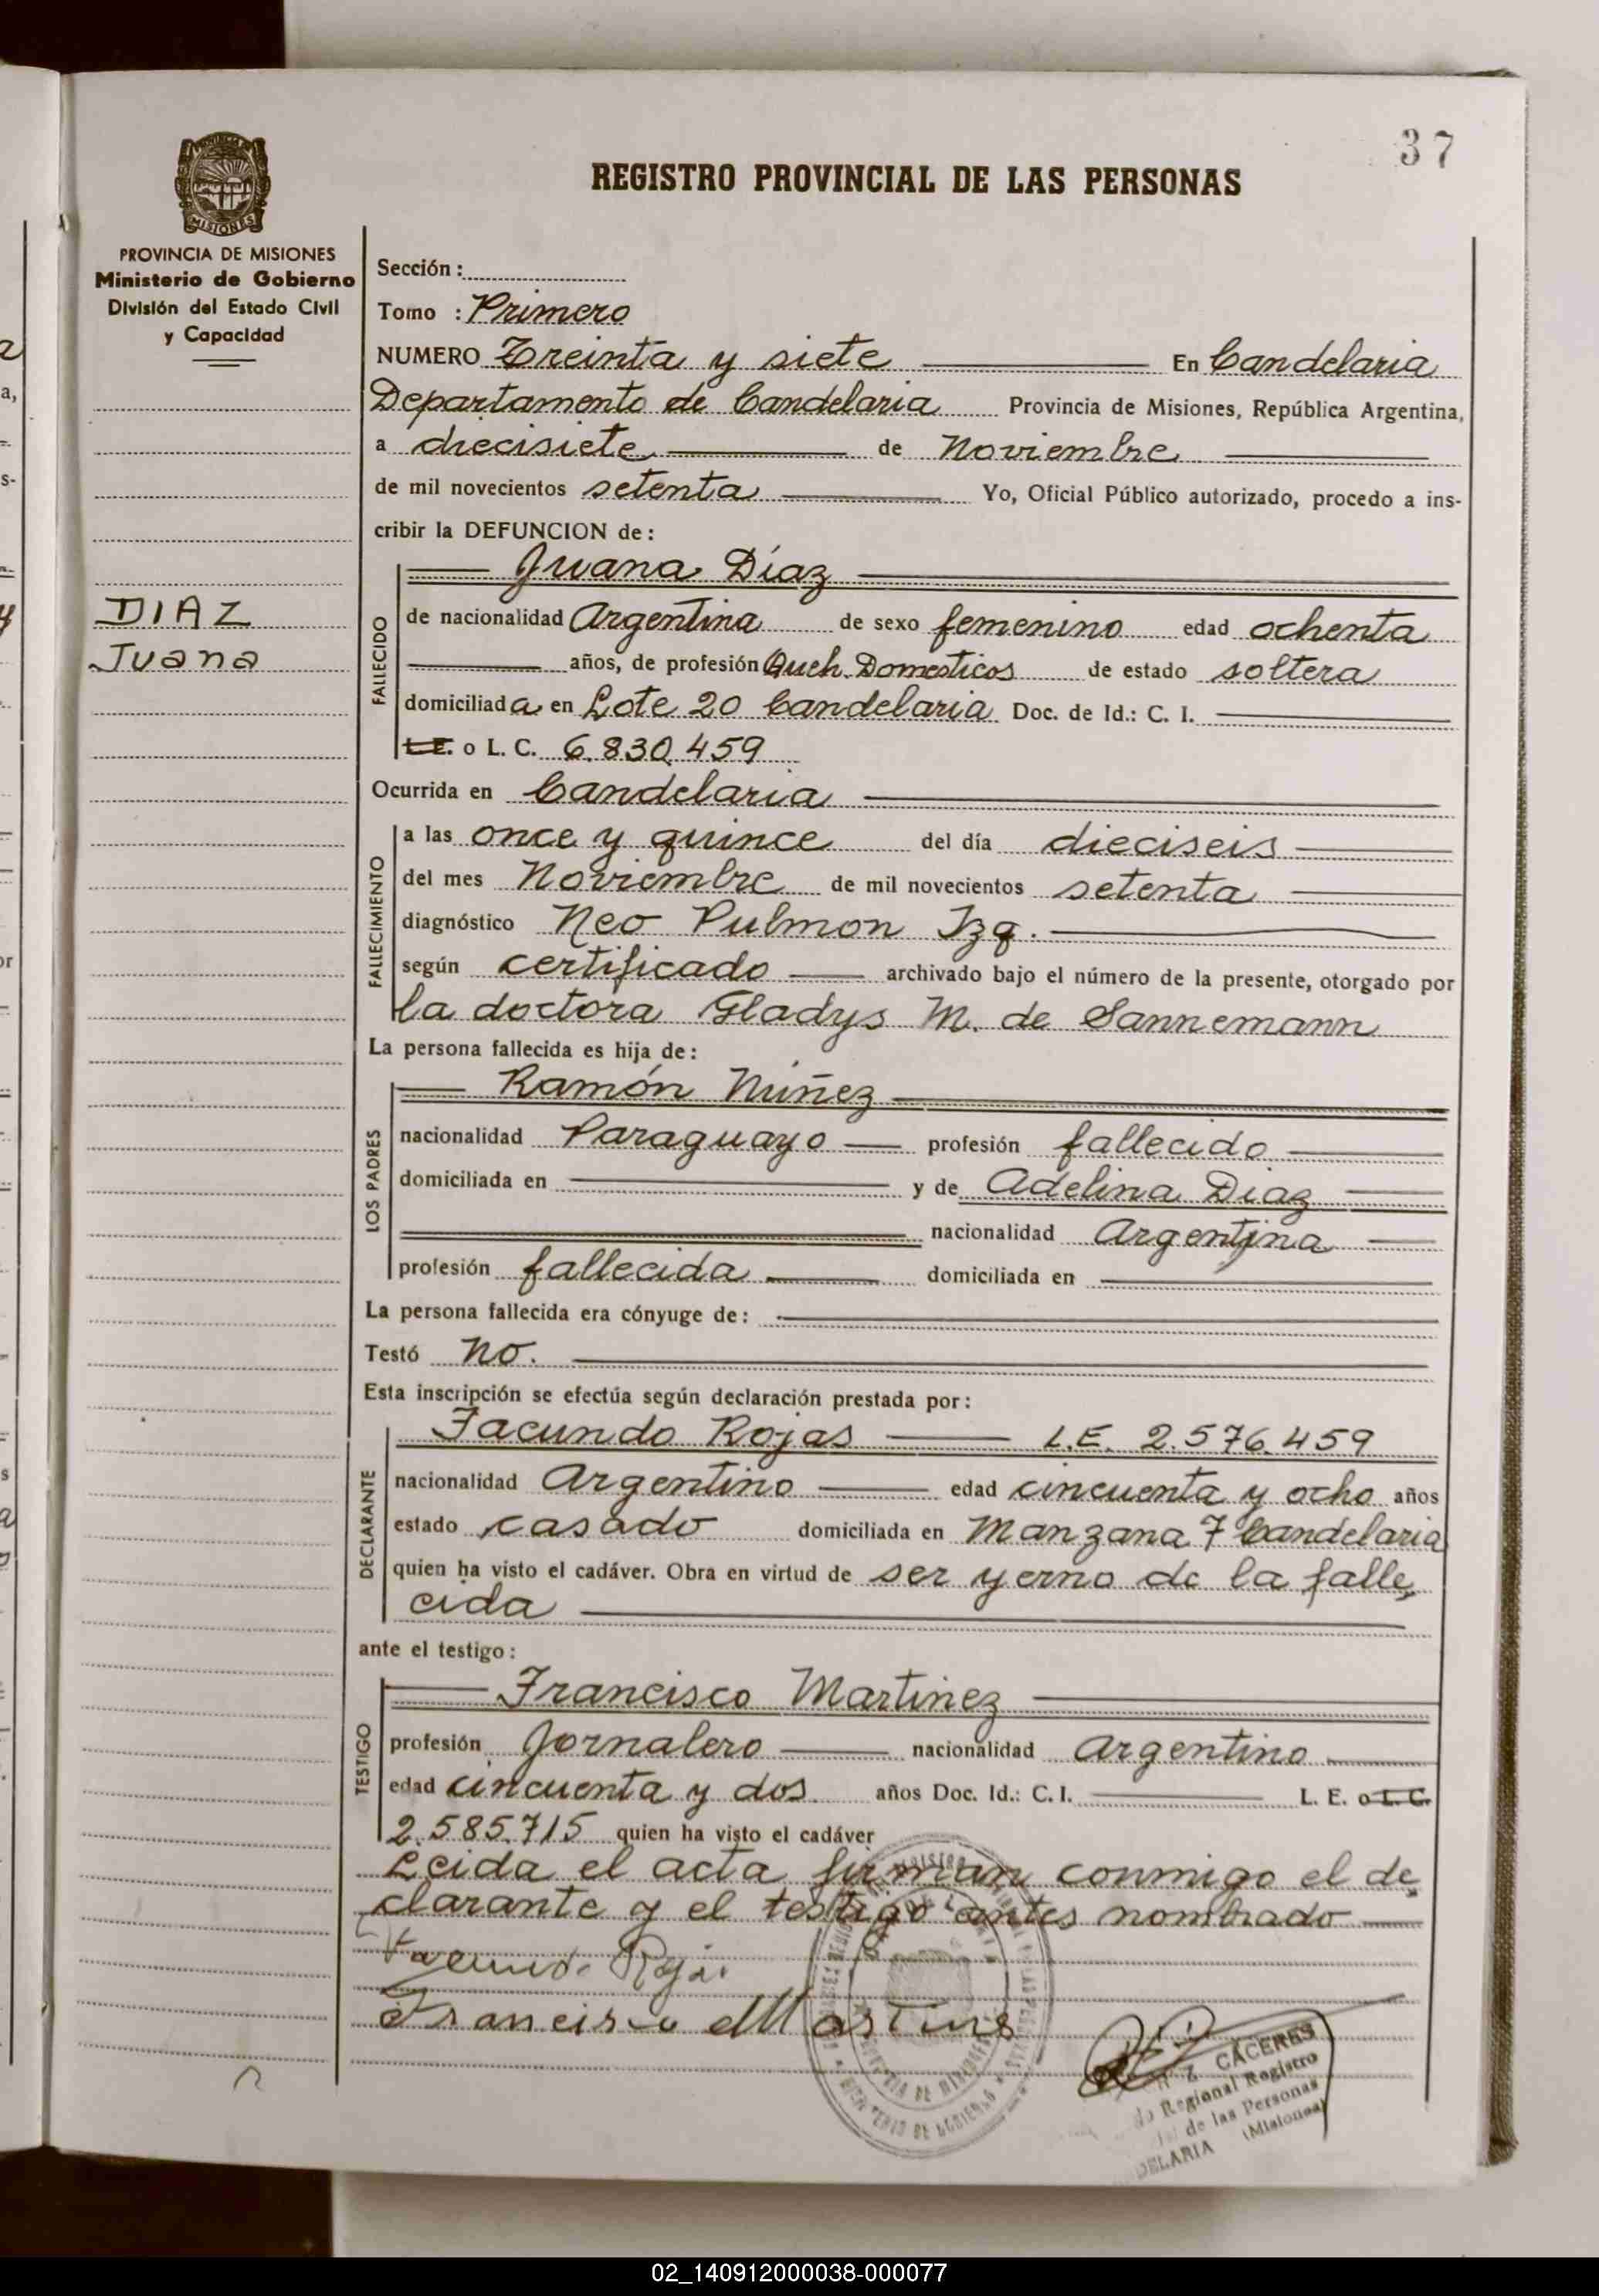 37
REGISTRO PROVINCIAL DE LAS PERSONAS
MISIONES
PROVINCIA DE MISIONES
Ministerio de Gobierno
División del Estado Civil
y Capacidad
Sección:
Tomo : Primero
NUMERO Treinta y siete En Candelaria
Departamento de Candelaria Provincia de Misiones, República Argentina,
a diecisiete de Noviembre
de mil novecientos setenta Yo, Oficial Público autorizado, procedo a ins-
cribir la DEFUNCION de:
Juana Díaz
DIAZ
Juana
FALLECIDO
de nacionalidad Argentina de sexo femenino edad ochenta
años, de profesión Queh. Domesticos de estado soltera
domiciliada en Lote 20 Candelaria Doc. de Id.: C. I.
L.E. o L. C. 6.830.459
Ocurrida en Candelaria
FALLECIMIENTO
a las once y quince del día dieciseis
del mes Noviembre de mil novecientos setenta
diagnóstico Neo Pulmon Izq.
según certificado archivado bajo el número de la presente, otorgado por
la doctora Gladys M. de Sannemann
La persona fallecida es hija de:
LOS PADRES
Ramón Núñez
nacionalidad Paraguayo profesión fallecido
domiciliada en y de Adelina Diaz
nacionalidad Argentina
profesión fallecida domiciliada en
La persona fallecida era cónyuge de:
Testó no.
Esta inscripción se efectúa según declaración prestada por:
DECLARANTE
Facundo Rojas L.E. 2.576.459
nacionalidad Argentino edad cincuenta y ocho años
estado casado domiciliada en Manzana 7 Candelaria
quien ha visto el cadáver. Obra en virtud de ser yerno de la falle
cida
ante el testigo:
TESTIGO
Francisco Martinez
profesión Jornalero nacionalidad Argentino
edad cincuenta y dos años Doc. Id.: C. I. L. E. o L. C.
2.585.715 quien ha visto el cadáver
Leida el acta firman conmigo el de
clarante y el testigo antes nombrado
Facundo Rojas
Francisco Martines
CÁCERES
Regional Registro
de las Personas
DELARIA (Misiones)
02_140912000038-000077